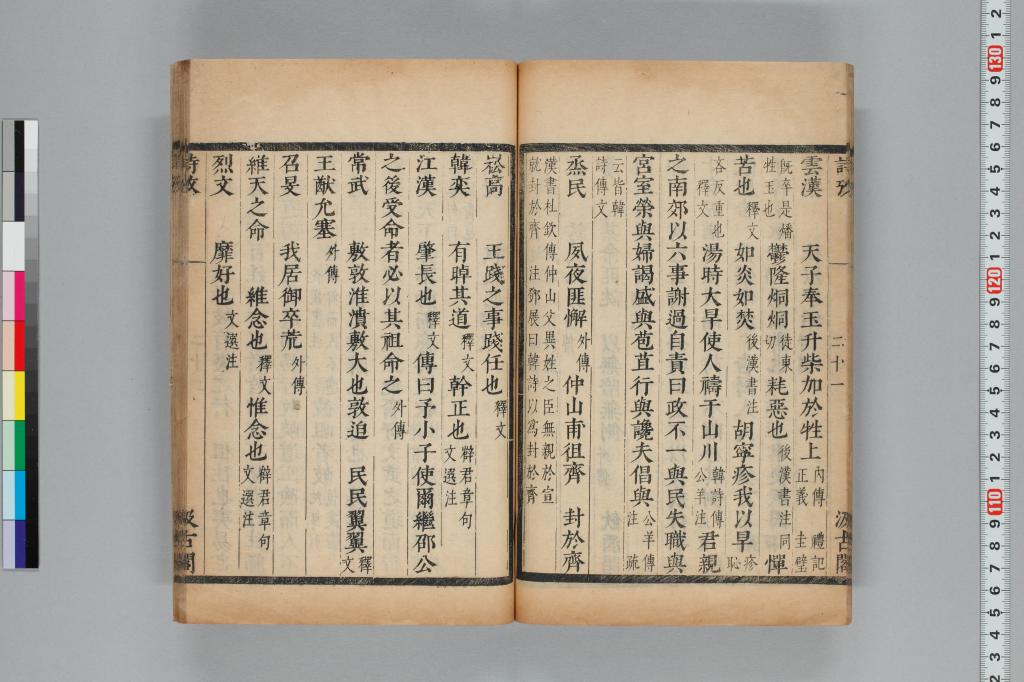 詩攷
二十一
汲古閣
雲漢 天子奉玉升柴加於牲上 內傳 禮記正義 圭璧
既卒是燔牲玉也 鬱隆烔烔 徒東切 耗惡也 後漢書注同 憚
苦也 釋文 如炎如焚 後漢書注 胡寧疹我以旱 疹恥
吝反重也釋文 湯時大旱使人禱于山川 韓詩傳公羊注 君親
之南郊以六事謝過自責曰政不一與民失職與
宮室榮與婦謁盛與苞苴行與讒夫倡與 公羊傳注疏
云皆韓詩傳文
烝民 夙夜匪懈 外傳 仲山甫徂齊 封於齊
漢書杜欽傳仲山父異姓之臣無親於宣就封於齊 注鄧展曰韓詩以為封於齊
崧高 王踐之事踐任也 釋文
韓奕 有晫其道 釋文 幹正也 薛君章句文選注
江漢 肇長也 釋文 傳曰予小子使爾繼邵公
之後受命者必以其祖命之 外傳
常武 敷敦淮濆敷大也敦迫 民民翼翼 釋文
王猷允塞 外傳
召旻 我居御卒荒 外傳
維天之命 維念也 釋文 惟念也 薛君章句文選注
烈文 靡好也 文選注
詩攷
汲古閣